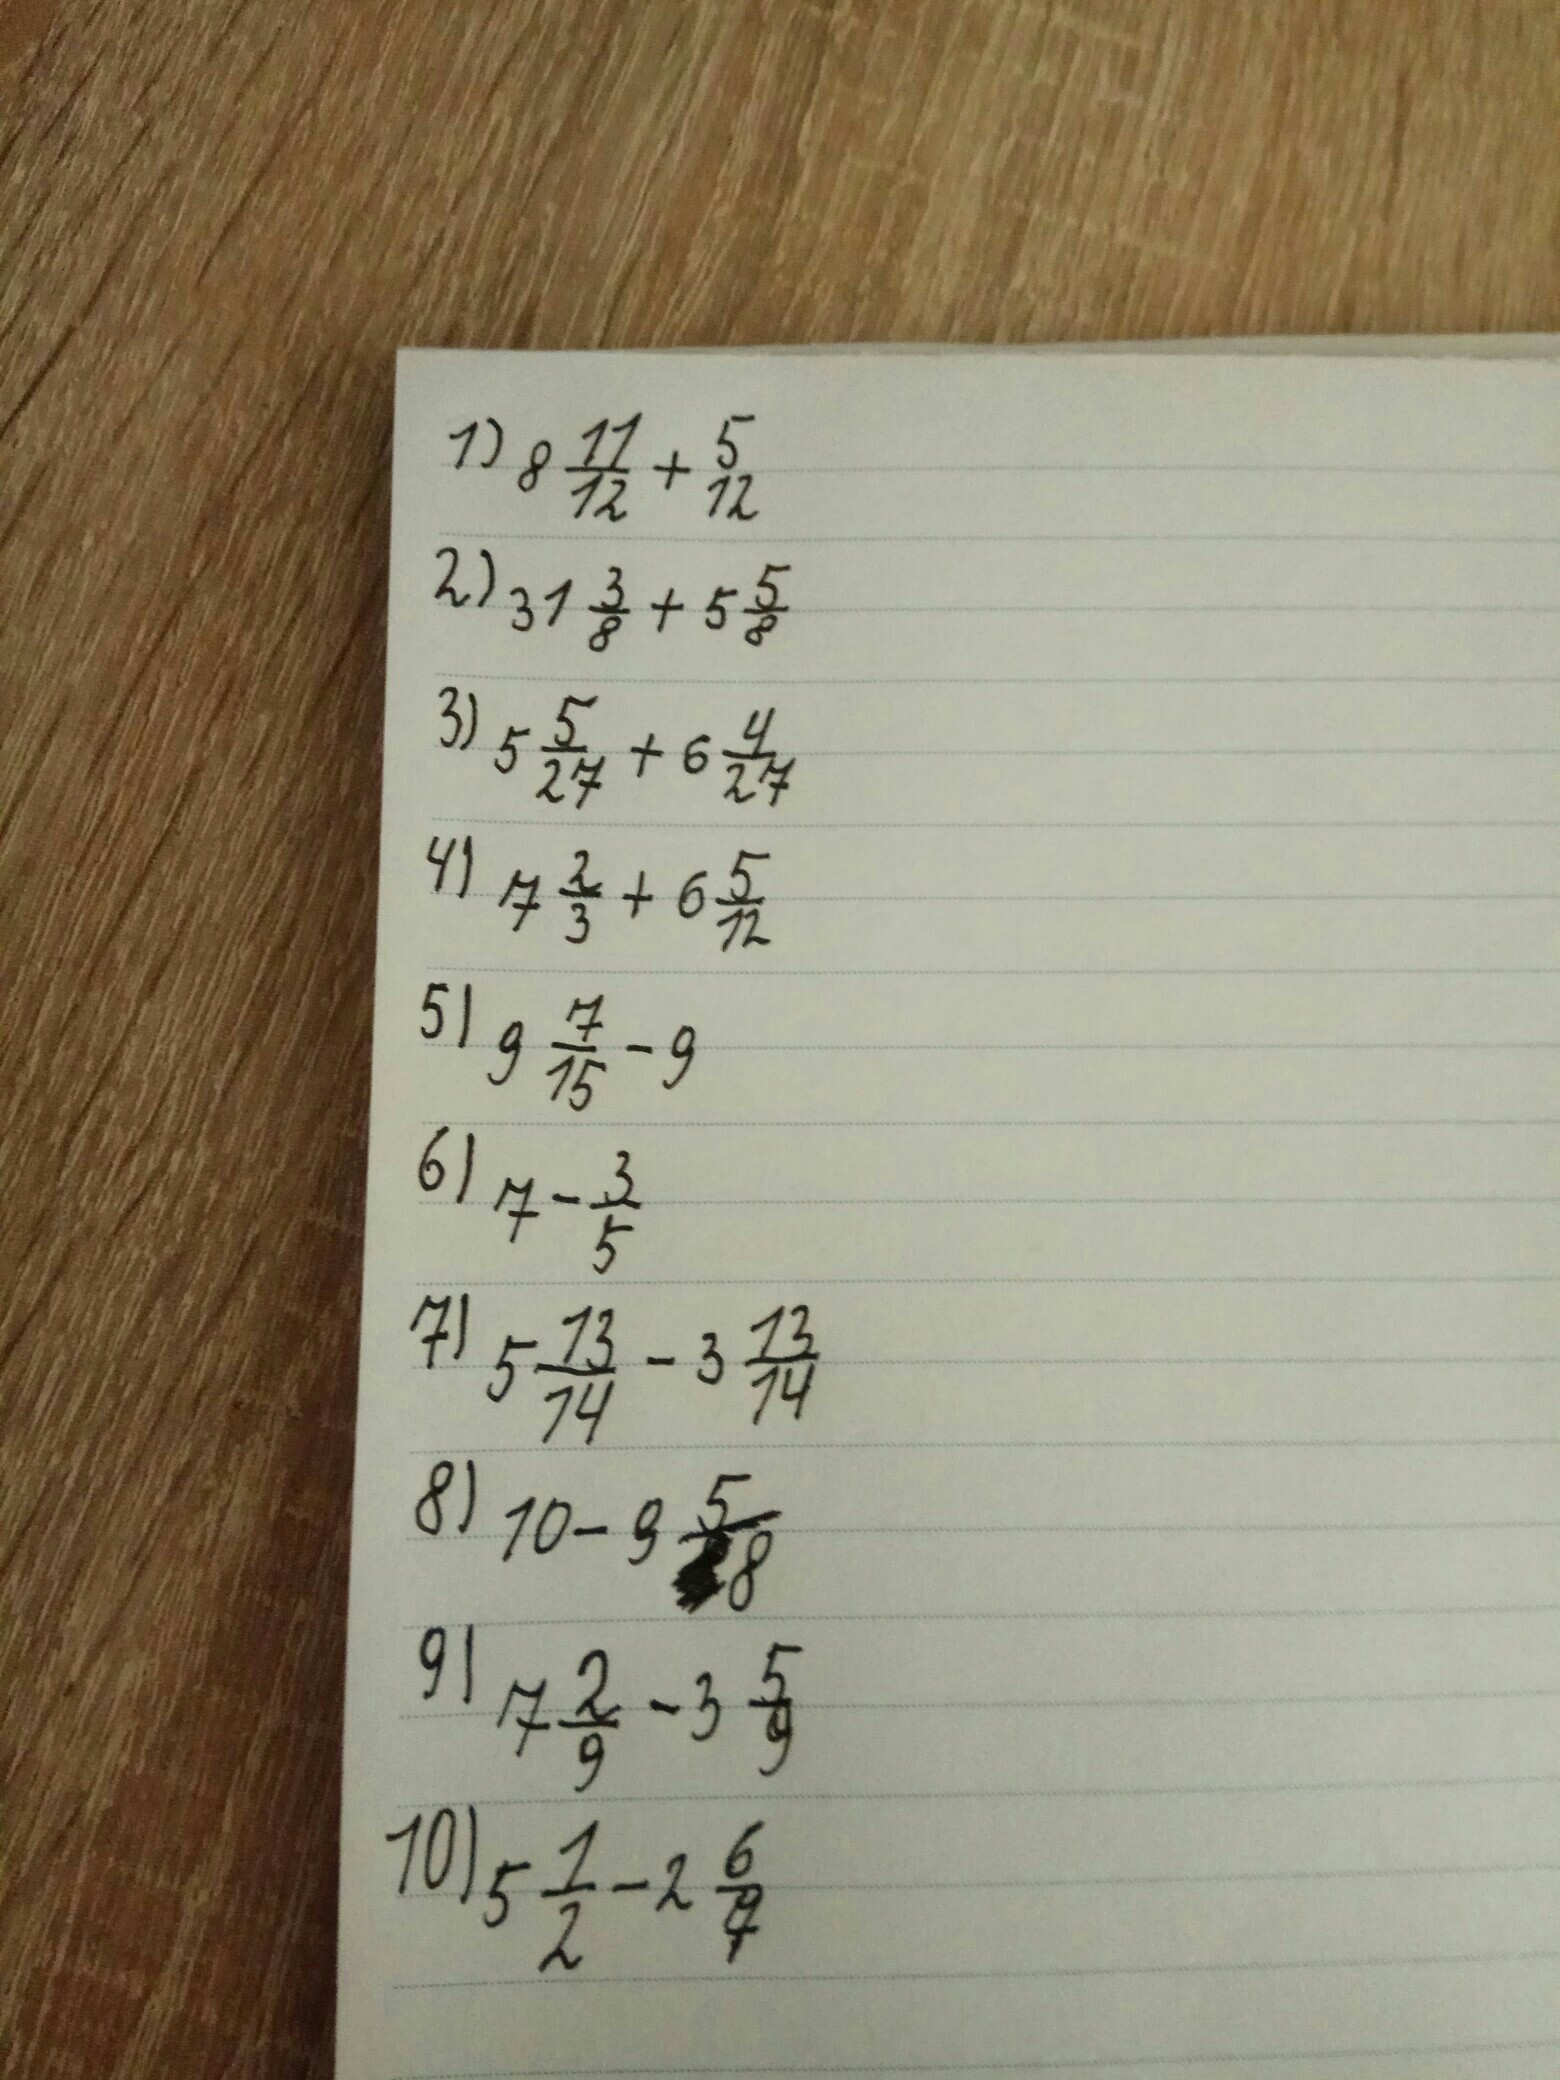 1) 8 11/12 + 5/12
2) 31 3/8 + 5 5/8
3) 5 5/27 + 6 4/27
4) 7 2/3 + 6 5/12
5) 9 7/15 - 9
6) 7 - 3/5
7) 5 13/14 - 3 13/14
8) 10 - 9 5/8
9) 7 2/9 - 3 5/9
10) 5 1/2 - 2 6/7